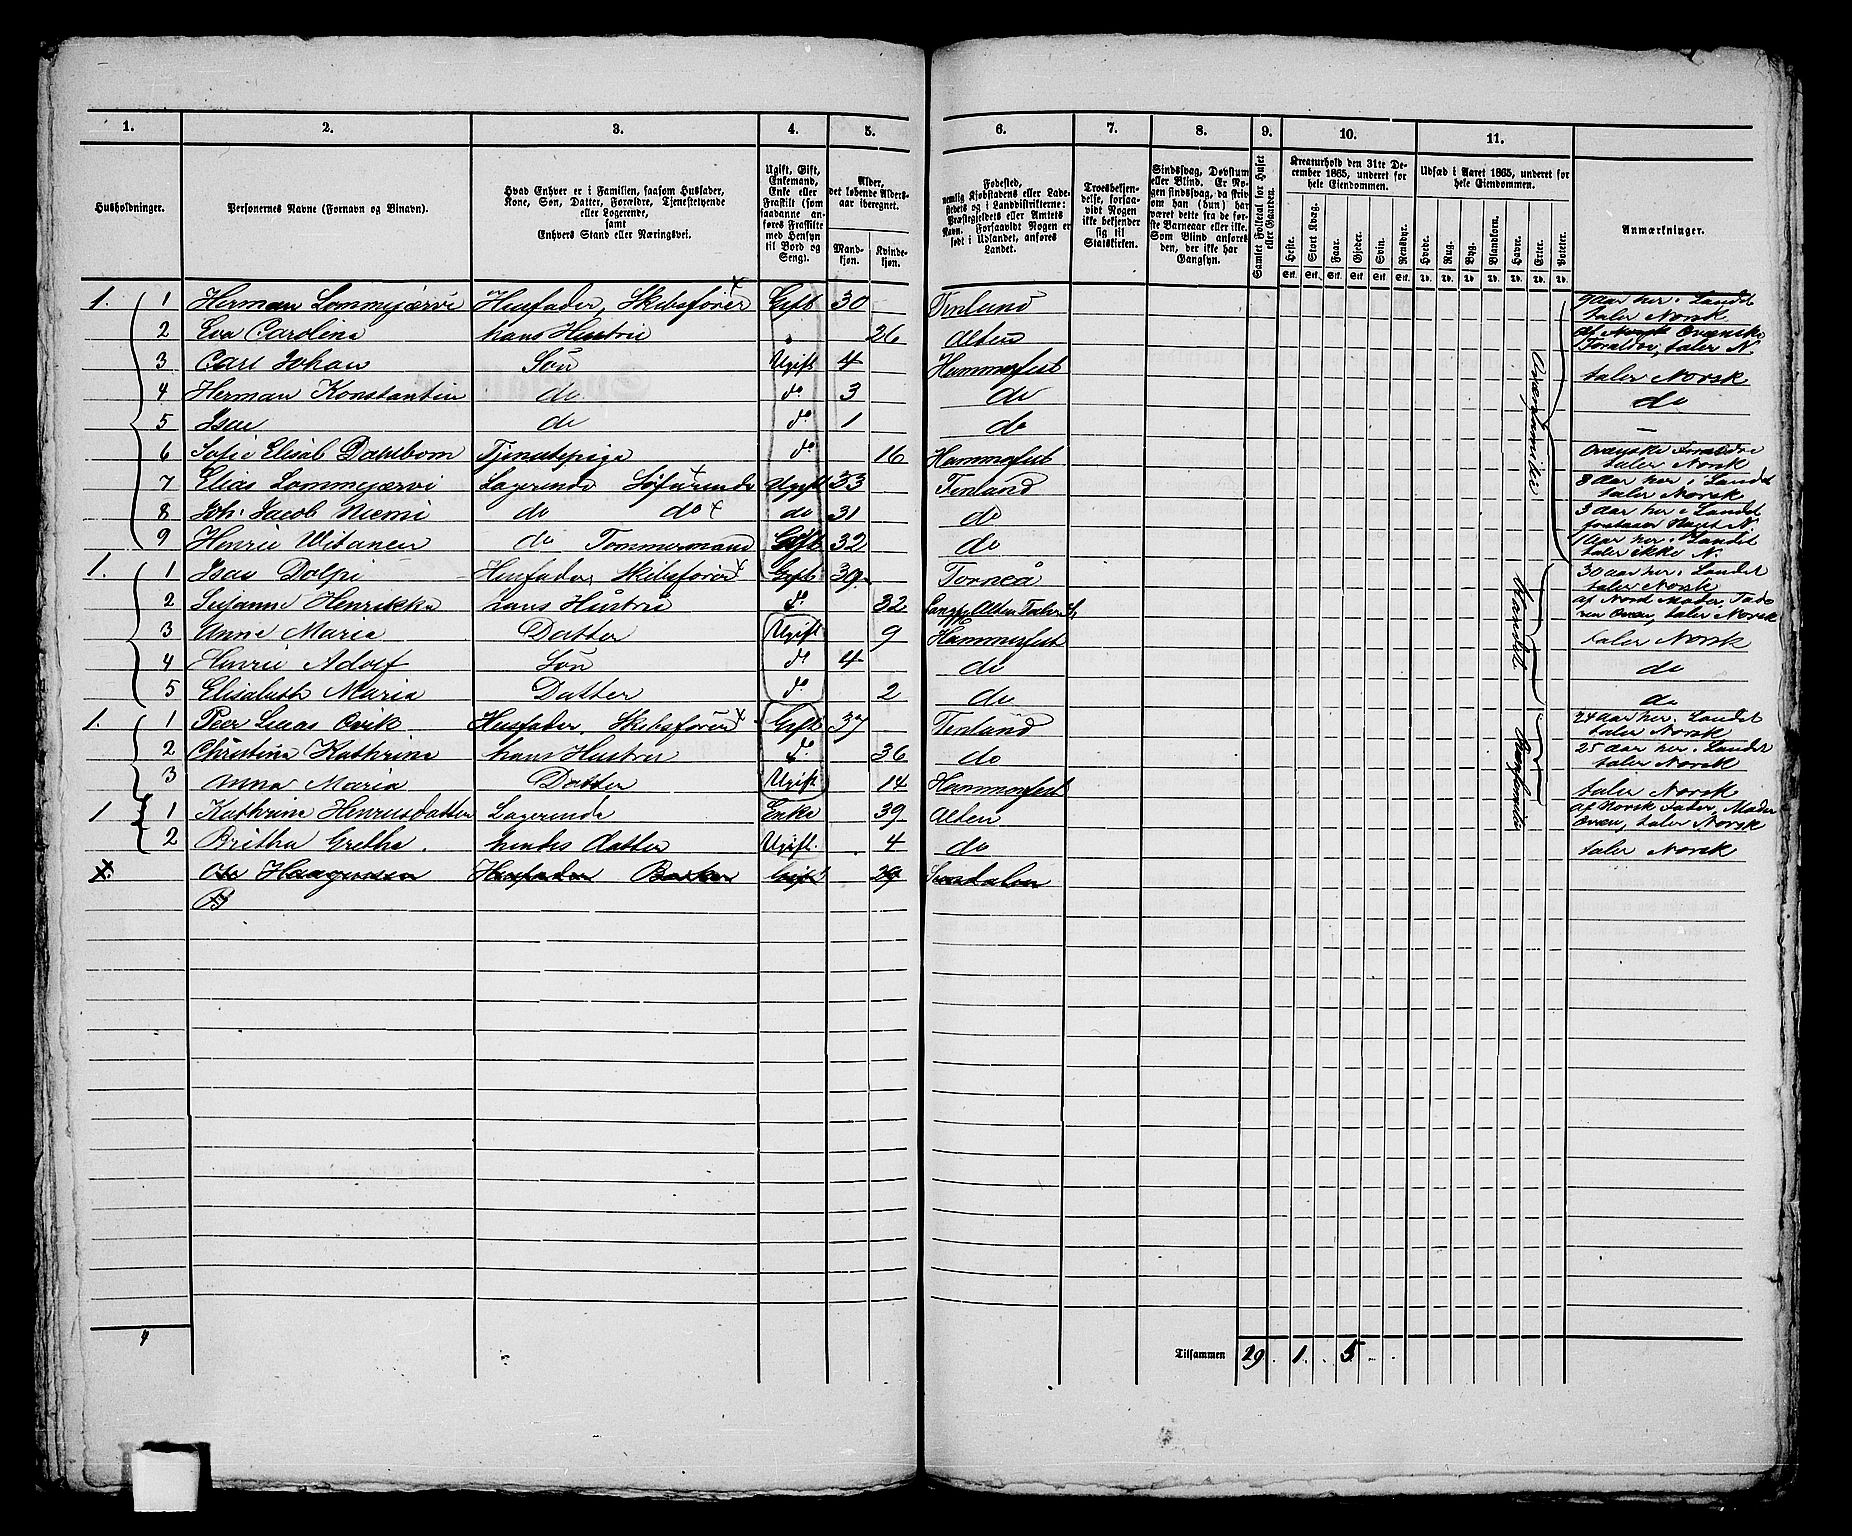 1. 2. 3. 4. 5. 6. 7. 8. 9. 10. 11.
Husholdninger.
Personernes Navne (Fornavn og Tilnavn).
Hvad Enhver er i Familien, saasom Husfader,
Kone, Søn, Datter, Forældre, Tjenestetyende
eller Logerende,
samt
Enhvers Stand eller Næringsvei.
Ugift, Gift,
Enkemand,
Enke eller
Fraskilt (som
saadanne an-
føres Fraskilte
med Hensyn
til Bord og
Seng).
Alder,
det løbende Alders-
aar iberegnet.
Mand-
kjøn.
Kvinde-
kjøn.
Fødested,
nemlig Kjøbstadens eller Lade-
stedets og i Landdistrikterne:
Præstegjeldets eller Amtets
Navn. Forsaavidt Nogen er
født i Udlandet, anføres
Landet.
Troesbekjen-
delse, forsaa-
vidt Nogen
ikke bekjender
sig til
Statskirken.
Sindssvag, Døvstum
eller Blind. Er No-
gen sindssvag, da skriv
om han (hun) har
været dette fra de før-
ste Barneaar eller ikke.
Som Blind ansøres
den, der ikke har
Gangsyn.
Samlet Folketal for Huset eller Gaarden.
Kreaturhold den 31te De-
cember 1865, underet for
hele Eiendommen.
Heste. Stort Kvæg. Faar. Gjeder. Svin. Rensdyr.
Stk. Stk. Stk. Stk. Stk. Stk.
Udsæd i Aaret 1865, underet for
hele Eiendommen.
Hvede. Rug. Byg. Blandkorn. Havre. Erter. Poteter.
Anmærkninger.
1. 1 Herman Lommejærvi Husfader, Skibsfører Gift 30 Finland 9 aar her i Landet taler Norsk.
2 Eva Carolina hans Hustru " 26 Alten af Qvænske Forældre, taler N.
3 Carl Johan Søn Ugift 4 Hammerfest taler Norsk
4 Herman Konstantin do do 3 do do
5 Isac do do 1 do —
6 Sofie Elisab Dahlbom Tjenestepige do 16 Hammerfest Qvænske Forældre taler Norsk
7 Elias Lommejærvi Logerende Søfarende Ugift 33 Finland 8 Aar her i Landet taler Norsk
8 Joh. Jacob Niemi do do do 31 do 3 aar her i Landet forstaaer Noget N.
9 Henric Witanen do Tømmermand Gift 32 do 1 Aar her i Landet taler ikke N.
1. 1 Isac Dolpi Husfader, Skibsfører Gift 39 Torneå 30 aar her i Landet taler Norsk
2 Susanne Henrikka hans Hustru do 32 Alten af Nord Moder, Fade ren Qvæn, taler Norsk
3 Anne Maria Datter Ugift 9 Hammerfest taler Norsk
4 Henric Adolf Søn do 4 do do
5 Elisabeth Maria Datter do 2 do do
1. 1 Peer Lucas Qvik Husfader, Skibsfører Gift 37 Finland 24 aar her i Landet taler Norsk
2 Christina Kathrine hans Hustru do 36 do 25 aar her i Landet taler Norsk
3 Anna Maria Datter Ugift 14 Hammerfest taler Norsk
1 1 Kathrine Henricsdatter Logerende Enke 39 Alten af Norsk Fader, Moder Qvæn, taler Norsk
2 Britha Gretha. hendes Datter Ugift. 4 do taler Norsk
Ole Haagensen Husfader Gift 29
B
4
Tilsammen 29. 1. 5